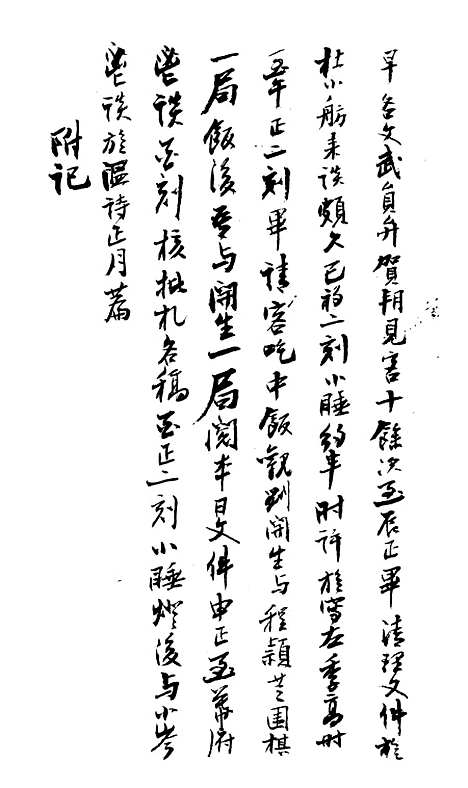 早各文武員弁賀朔見客十餘次至辰正畢清理文件旋
杜小舫來談頗久巳初二刻小睡約半時許旋寫左季高
至午正二刻畢請客吃中飯觀劉開生与程穎芝圍棋
一局飯後吾与開生一局閱本日文件申正至幕府
鬯談酉刻核批札各稿酉正二刻小睡燈後与小岑
鬯談旋溫詩正月篇
附记